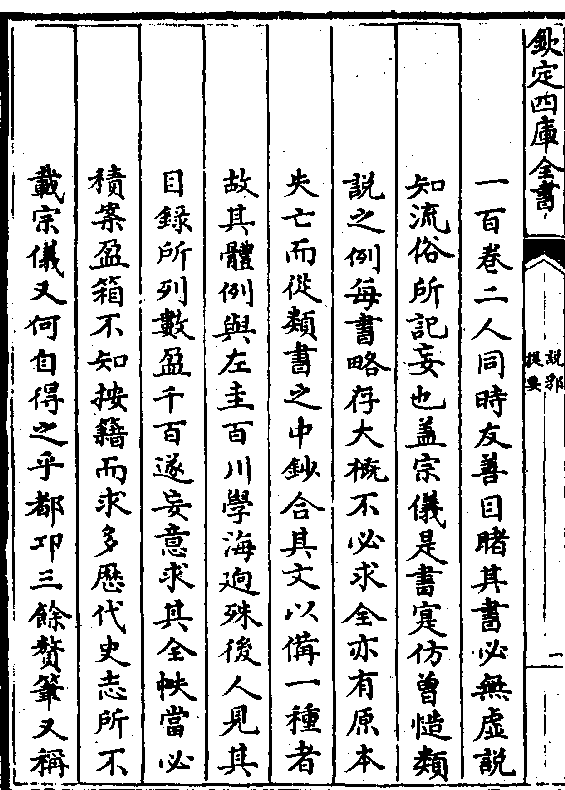 欽定四庫全書
說郛
提要
一
一百卷二人同時友善目睹其書必無虛說
知流俗所記妄也蓋宗儀是書寔仿曾慥類
説之例每書略存大槪不必求全亦有原本
失亡而從類書之中鈔合其文以備一種者
故其體例與左圭百川學海逈殊後人見其
目錄所列數盈千百遂妄意求其全帙當必
積案盈箱不知按籍而求多歷代史志所不
載宗儀又何自得之乎都卭三餘贅筆又稱